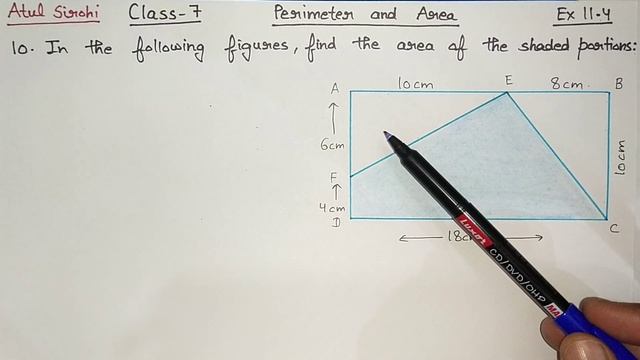 Atul Sirohi Class-7 Perimeter and Area Ex 11.4
10. In the following figures, find the area of the shaded portions:
A 10cm E 8cm. B
6cm
10cm
F
4cm
D C
18cm
Luxor CD/DVD/OHP